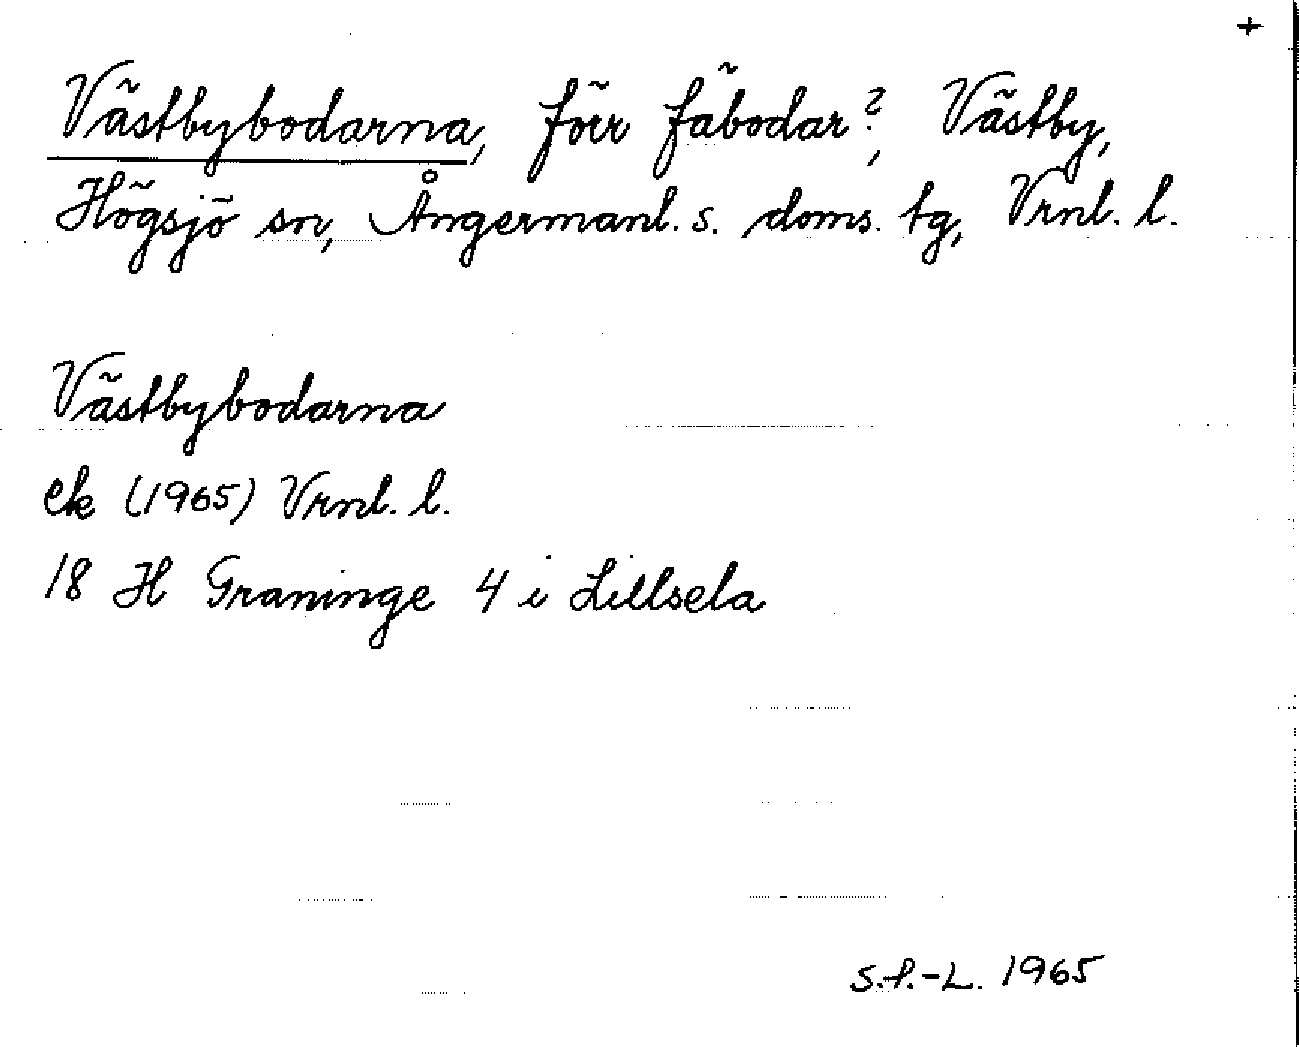 +
Västbybodarna, förr fäbodar?, Västby,
Högsjö sn, Ångermanl. s. doms. tg, Vrnl. l.
Västbybodarna
ek (1965) Vrnl. l.
18 H Graninge 4 i Lillsela
S.f.-L. 1965